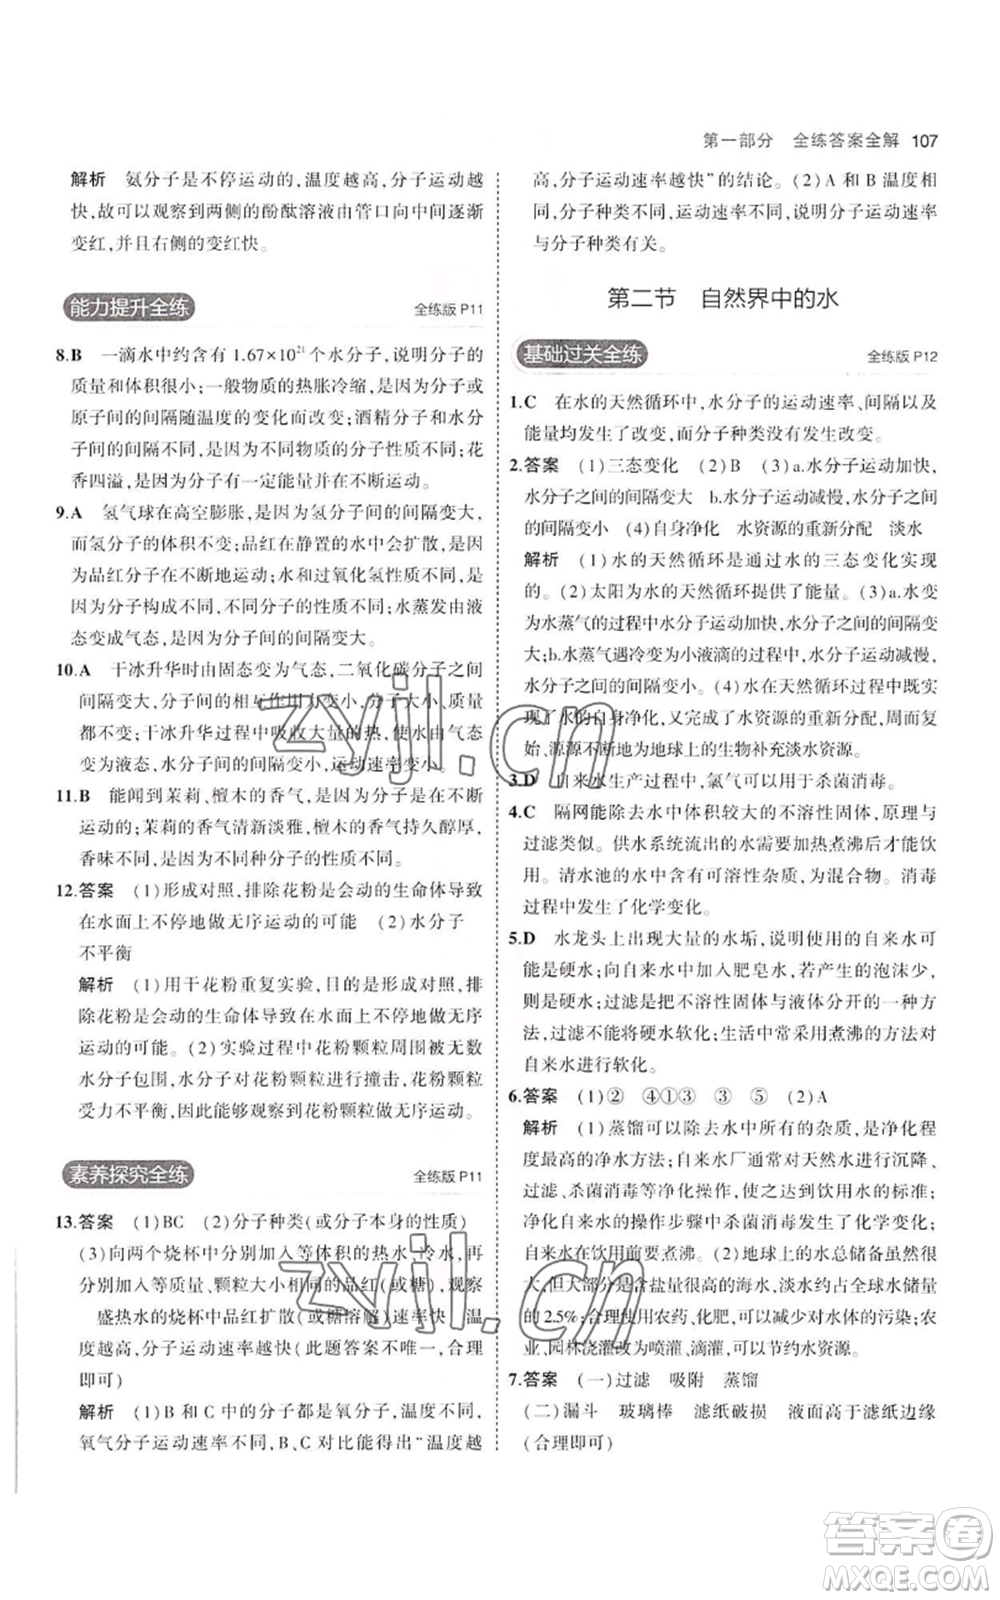 第一部分 全练答案全解 107
解析 氨分子是不停运动的,温度越高,分子运动越
快,故可以观察到两侧的酚酞溶液由管口向中间逐渐
变红,并且右侧的变红快。
能力提升全练 全练版 P11
8.B 一滴水中约含有 1.67×10²¹ 个水分子,说明分子的
质量和体积很小;一般物质的热胀冷缩,是因为分子或
原子间的间隔随温度的变化而改变;酒精分子和水分
子间的间隔不同,是因为不同物质的分子性质不同;花
香四溢,是因为分子有一定能量并在不断运动。
9.A 氢气球在高空膨胀,是因为氢分子间的间隔变大,
而氢分子的体积不变;品红在静置的水中会扩散,是因
为品红分子在不断地运动;水和过氧化氢性质不同,是
因为分子构成不同,不同分子的性质不同;水蒸发由液
态变成气态,是因为分子间的间隔变大。
10.A 干冰升华时由固态变为气态,二氧化碳分子之间
间隔变大,分子间的相互作用力变小,分子大小、质量
都不变;干冰升华过程中吸收大量的热,使水由气态
变为液态,水分子间的间隔变小,运动速率变小。
11.B 能闻到茉莉、檀木的香气,是因为分子是在不断
运动的;茉莉的香气清新淡雅,檀木的香气持久醇厚,
香味不同,是因为不同种分子的性质不同。
12.答案 (1)形成对照,排除花粉是会动的生命体导致
在水面上不停地做无序运动的可能 (2)水分子
不平衡
解析 (1)用干花粉重复实验,目的是形成对照,排
除花粉是会动的生命体导致在水面上不停地做无序
运动的可能。(2)实验过程中花粉颗粒周围被无数
水分子包围,水分子对花粉颗粒进行撞击,花粉颗粒
受力不平衡,因此能够观察到花粉颗粒在不停运动。
素养探究全练 全练版 P11
13.答案 (1)BC (2)分子种类(或分子本身的性质)
(3)向两个烧杯中分别加入等体积的热水、冷水,再
分别加入等质量、颗粒大小相同的品红(或糖),观察
盛热水的烧杯中品红扩散(或糖溶解)速率快 温
度越高,分子运动速率越快(此题答案不唯一,合理
即可)
解析 (1)B 和 C 中的分子都是氧分子,温度不同,
氧气分子运动速率不同,B、C 对比能得出“温度越
高,分子运动速率越快”的结论。(2)A 和 B 温度相
同,分子种类不同,运动速率不同,说明分子运动速率
与分子种类有关。
第二节 自然界中的水
基础过关全练 全练版 P12
1.C 在水的天然循环中,水分子的运动速率、间隔以及
能量均发生了改变,而分子种类没有发生改变。
2.答案 (1)三态变化 (2)B (3)a.水分子运动加快,
水分子之间的间隔变大 b.水分子运动减慢,水分子之间
的间隔变小 (4)自身净化 水资源的重新分配 淡水
解析 (1)水的天然循环是通过水的三态变化实现
的。(2)太阳为水的天然循环提供了能量。(3)a.水变
为水蒸气的过程中水分子运动加快,水分子之间的间隔变
大;b.水蒸气遇冷变为小液滴的过程中,水分子运动减慢,
水分子之间的间隔变小。(4)水在天然循环过程中既实
现了水的自身净化,又完成了水资源的重新分配,周而复
始,源源不断地为地球上的生物补充淡水资源。
3.D 自来水生产过程中,氯气可以用于杀菌消毒。
4.C 隔网能除去水中体积较大的不溶性固体,原理与
过滤类似。供水系统流出的水需加热煮沸后才能饮
用。清水池的水中含有可溶性杂质,为混合物。消毒
过程中发生了化学变化。
5.D 水龙头上出现大量的水垢,说明使用的自来水可
能是硬水;向自来水中加入肥皂水,产生的泡沫少,
则是硬水;过滤是将不溶性固体与液体分开的一种方
法,过滤不能将硬水软化;生活中常采用煮沸的方法对
自来水进行软化。
6.答案 (1)② ④①③ ③ ⑤ (2)A
解析 (1)蒸馏可以除去水中所有的杂质,是净化程
度最高的净水方法;自来水厂通过对水进行沉降、
过滤、杀菌消毒等净化操作,以达到生活用水的标准;
净化自来水的操作步骤中杀菌消毒发生了化学变化;
自来水在饮用前要煮沸。(2)地球上的水总储备虽然很
大,但大部分是含盐量很高的海水,淡水约占全球水储量
的2.5%;合理使用农药、化肥,可以减少对水体的污染;农
业、园林浇灌改为喷灌、滴灌,可以节约水资源。
7.答案 (一)过滤 吸附 蒸馏
(二)漏斗 玻璃棒 滤纸破损 液面高于滤纸边缘
(合理即可)
zyjl.cn
zyjl.cn
答案圈
MXQE.COM